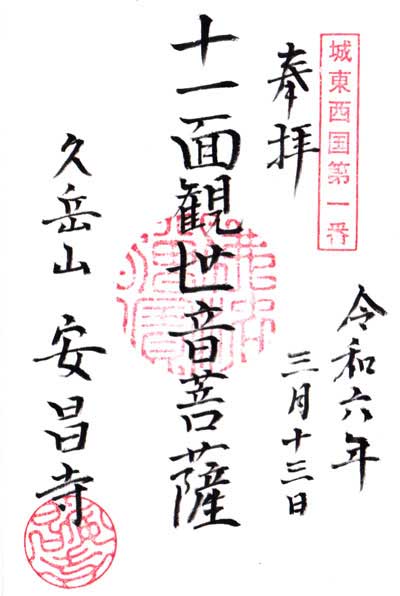 城東西国第一番
奉拝
令和六年
三月十三日
十一面観世音菩薩
久岳山 安昌寺